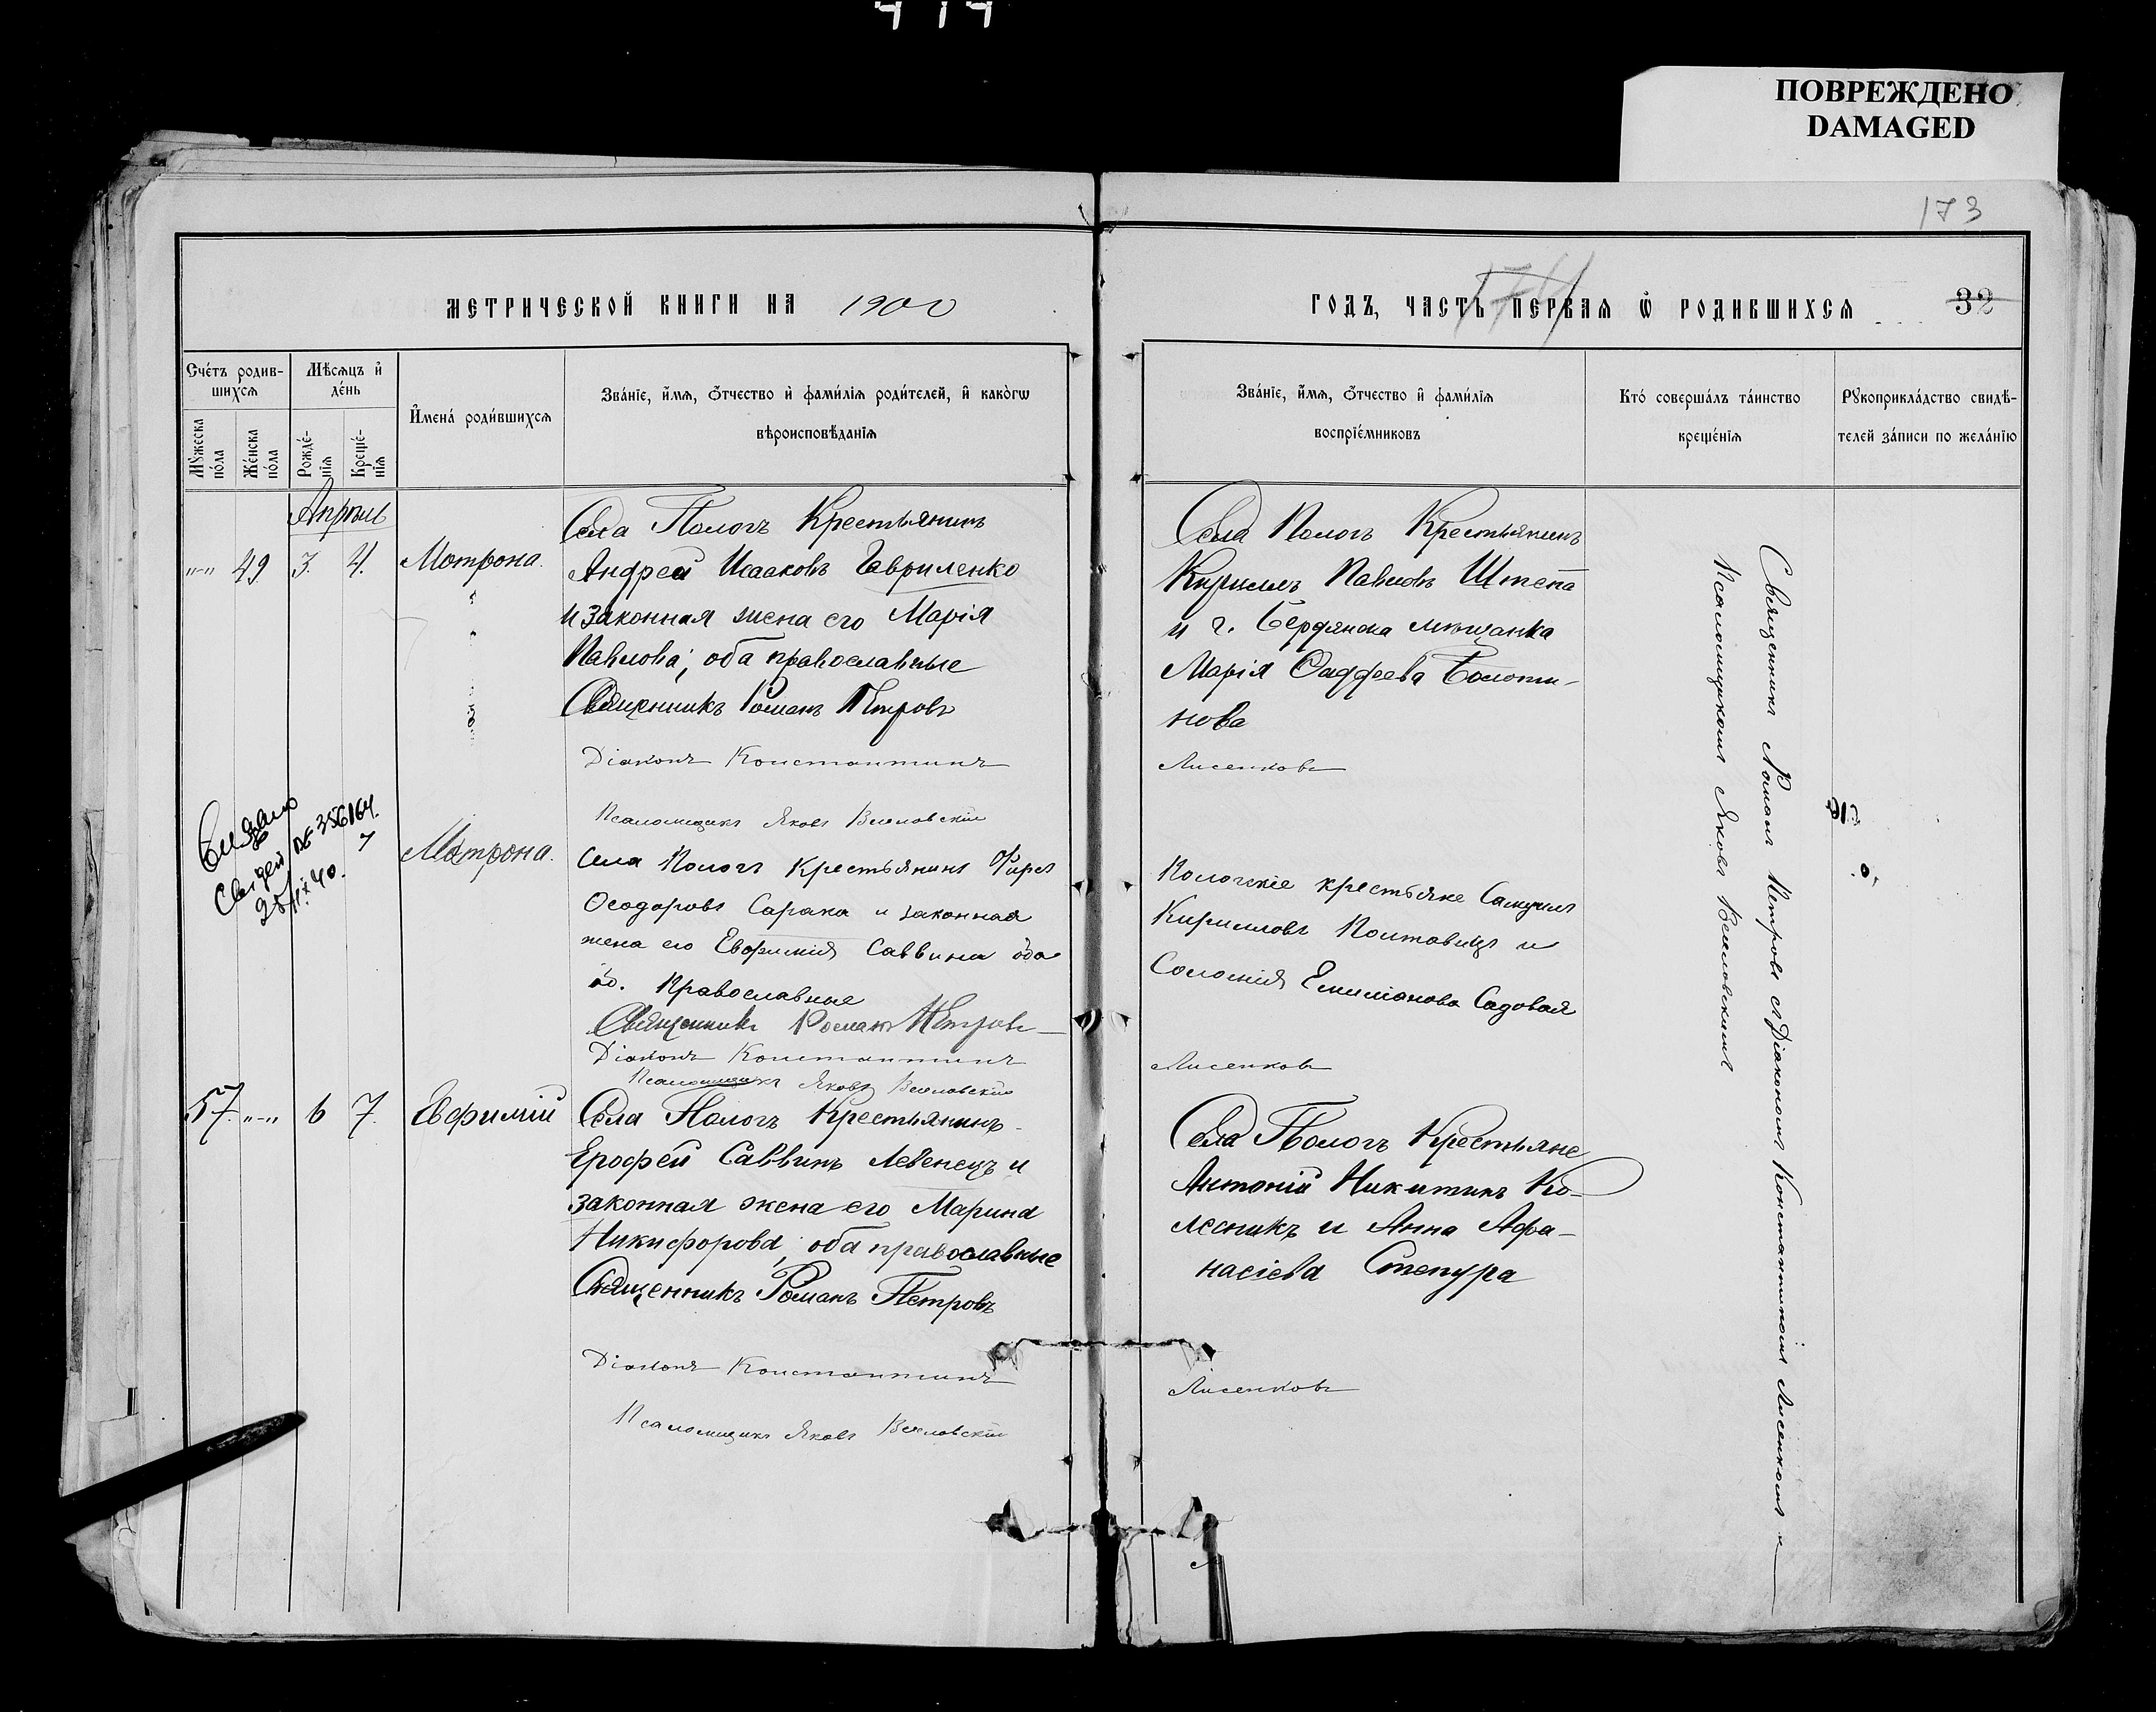 ПОВРЕЖДЕНО
DAMAGED
173
МЕТРИЧЕСКОЙ КНИГИ НА 1900
Счётъ родив-
шихся
Мѣсяцъ и
день
Мужеска
пола
Женска
пола
Рожде-
нія
Креще-
нія
Имена родившихся
Званіе, имя, отчество и фамилія родителей, и какогѡ
вѣроисповѣданія
Апрѣль
"-" 49 3. 4. Мотрона.
Села Пологъ Крестьянинъ
Андрей Исааковъ Гавриленко
и законная жена его Марія
Павлова, оба православные
Священникъ Романъ Петровъ
Діаконъ Константинъ
Псаломщикъ Яковъ Веселовскій
Выдано
Свідец
25/II 40.
7
Мотрона.
Села Пологъ крестьянинъ Фирсъ
Ѳеодоровъ Сарана и законная
жена его Евфимія Саввина оба
православные
Священникъ Романъ Петровъ
Діаконъ Константинъ
Псаломщикъ Яковъ Веселовскій
57. "-" 6 7. Евфимій
Села Пологъ Крестьянинъ
Ерофей Саввинъ Левенецъ и
законная жена его Марина
Никифорова, оба православные
Священникъ Романъ Петровъ
Діаконъ Константинъ
Псаломщикъ Яковъ Веселовскій
174
ГОДЪ, ЧАСТЬ ПЕРВАЯ Ѡ РОДИВШИХСЯ 32
Званіе, имя, отчество и фамилія
воспріемниковъ
Кто совершалъ таинство
крещенія
Рукоприкладство свидѣ-
телей записи по желанію
Села Пологъ Крестьянинъ
Кириллъ Павловъ Штепа
и г. Бердянска мѣщанка
Марія Фаддеева Болоти-
нова
Лисенковъ
Пологскіе крестьяне Самуилъ
Кирилловъ Полтавецъ и
Соломія Емиліанова Садовая
Лисенковъ
Села Пологъ Крестьяне
Антоній Никитинъ Ко-
лесникъ и Анна Афа-
насіева Степура
Лисенковъ
Священникъ Романъ Петровъ съ Діакономъ Константиномъ Лисенковымъ и
Псаломщикомъ Яковомъ Веселовскимъ